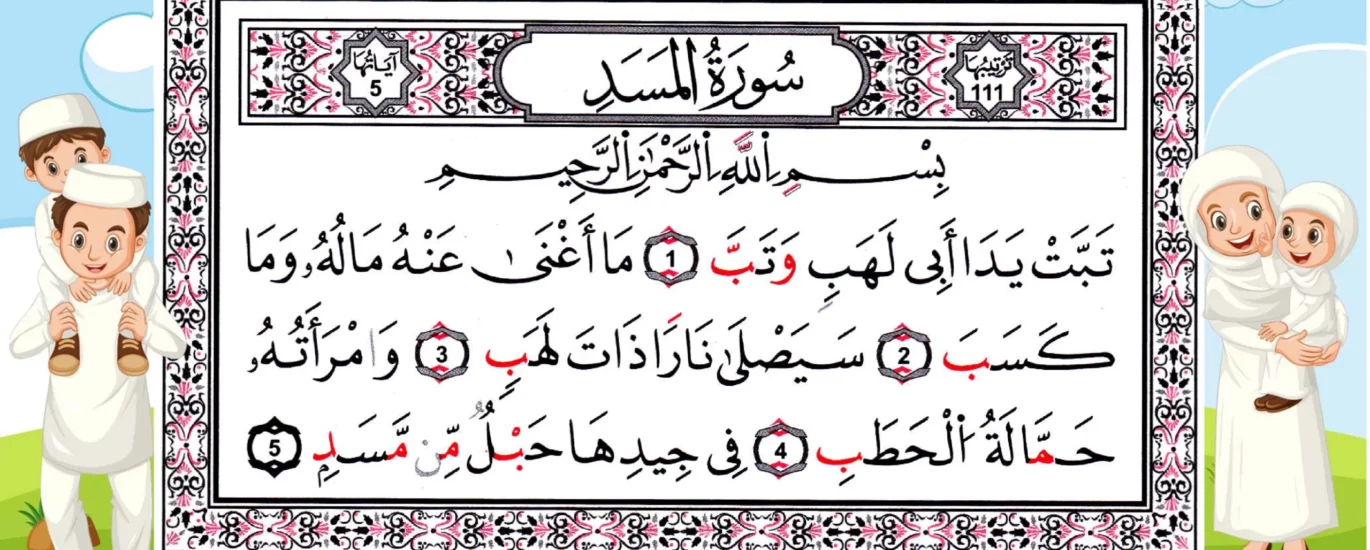 تَرْتِيبُهَا 111
سُورَةُ المَسَدِ
آيَاتُهَا 5
بِسْمِ اِللَّهِ اِلرَّحْمَٰنِ اِلرَّحِيمِ
تَبَّتْ يَدَا أَبِى لَهَبٍ وَتَبَّ 1 مَا أَغْنَىٰ عَنْهُ مَالُهُۥ وَمَا
كَسَبَ 2 سَيَصْلَىٰ نَارًا ذَاتَ لَهَبٍ 3 وَامْرَأَتُهُۥ
حَمَّالَةُ اُلْحَطَبِ 4 فِى جِيدِهَا حَبْلٌ مِّن مَّسَدٍ 5